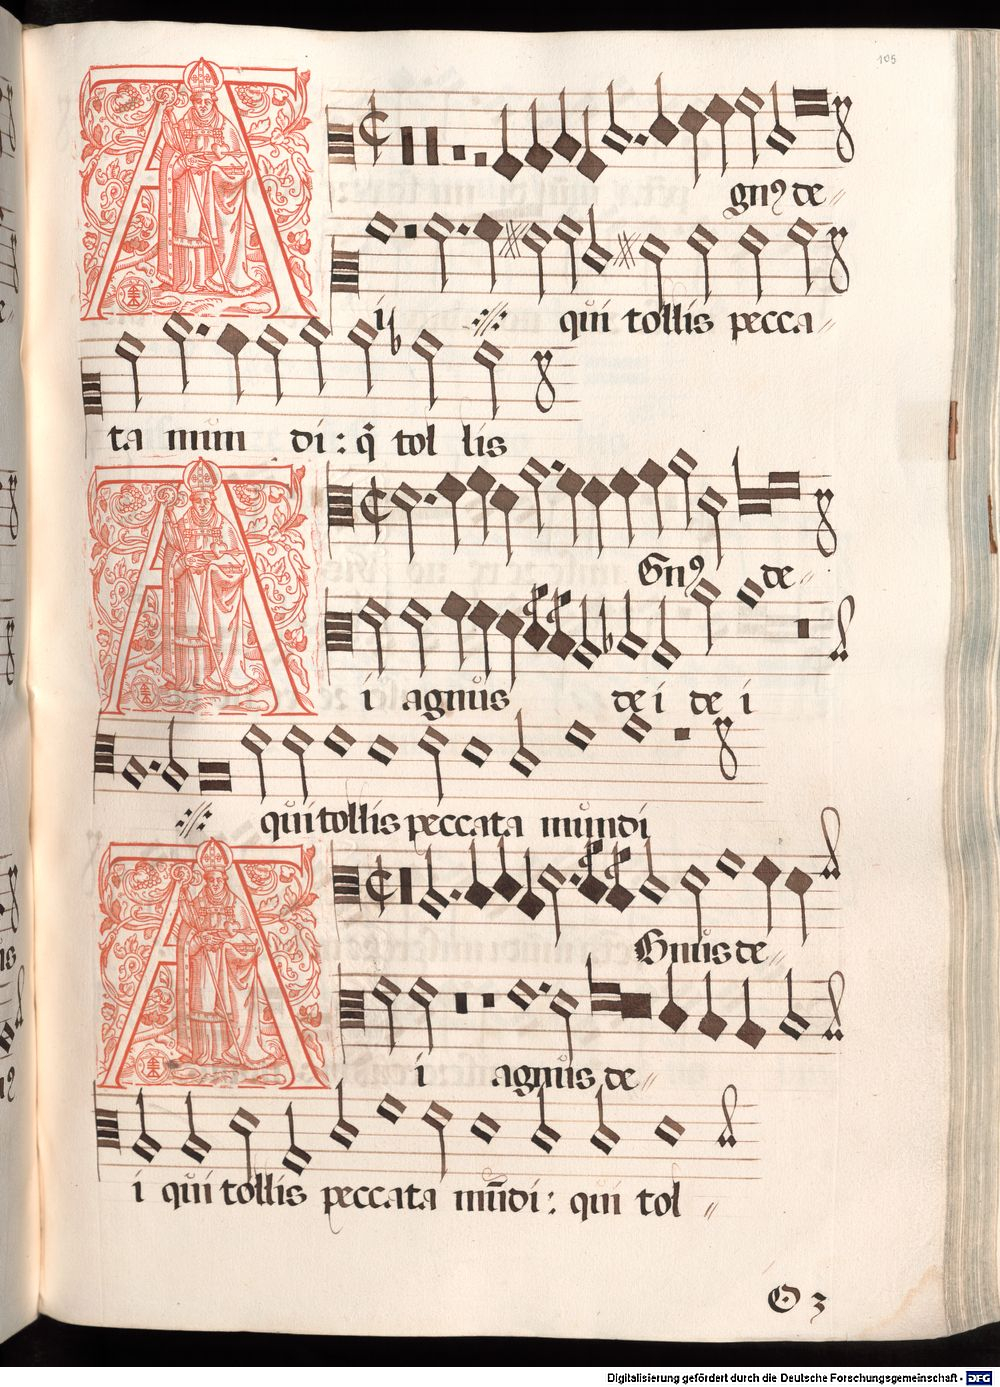 105
A gnꝰ de
i qui tollis pecca
ta mun di: q̄ tol lis
A Gnꝰ de
i agnus de i de i
qui tollis peccata mundi
A Gnus de
i agnus de
i qui tollis peccata mūdi: qui tol
O 3
Digitalisierung gefördert durch die Deutsche Forschungsgemeinschaft - DFG